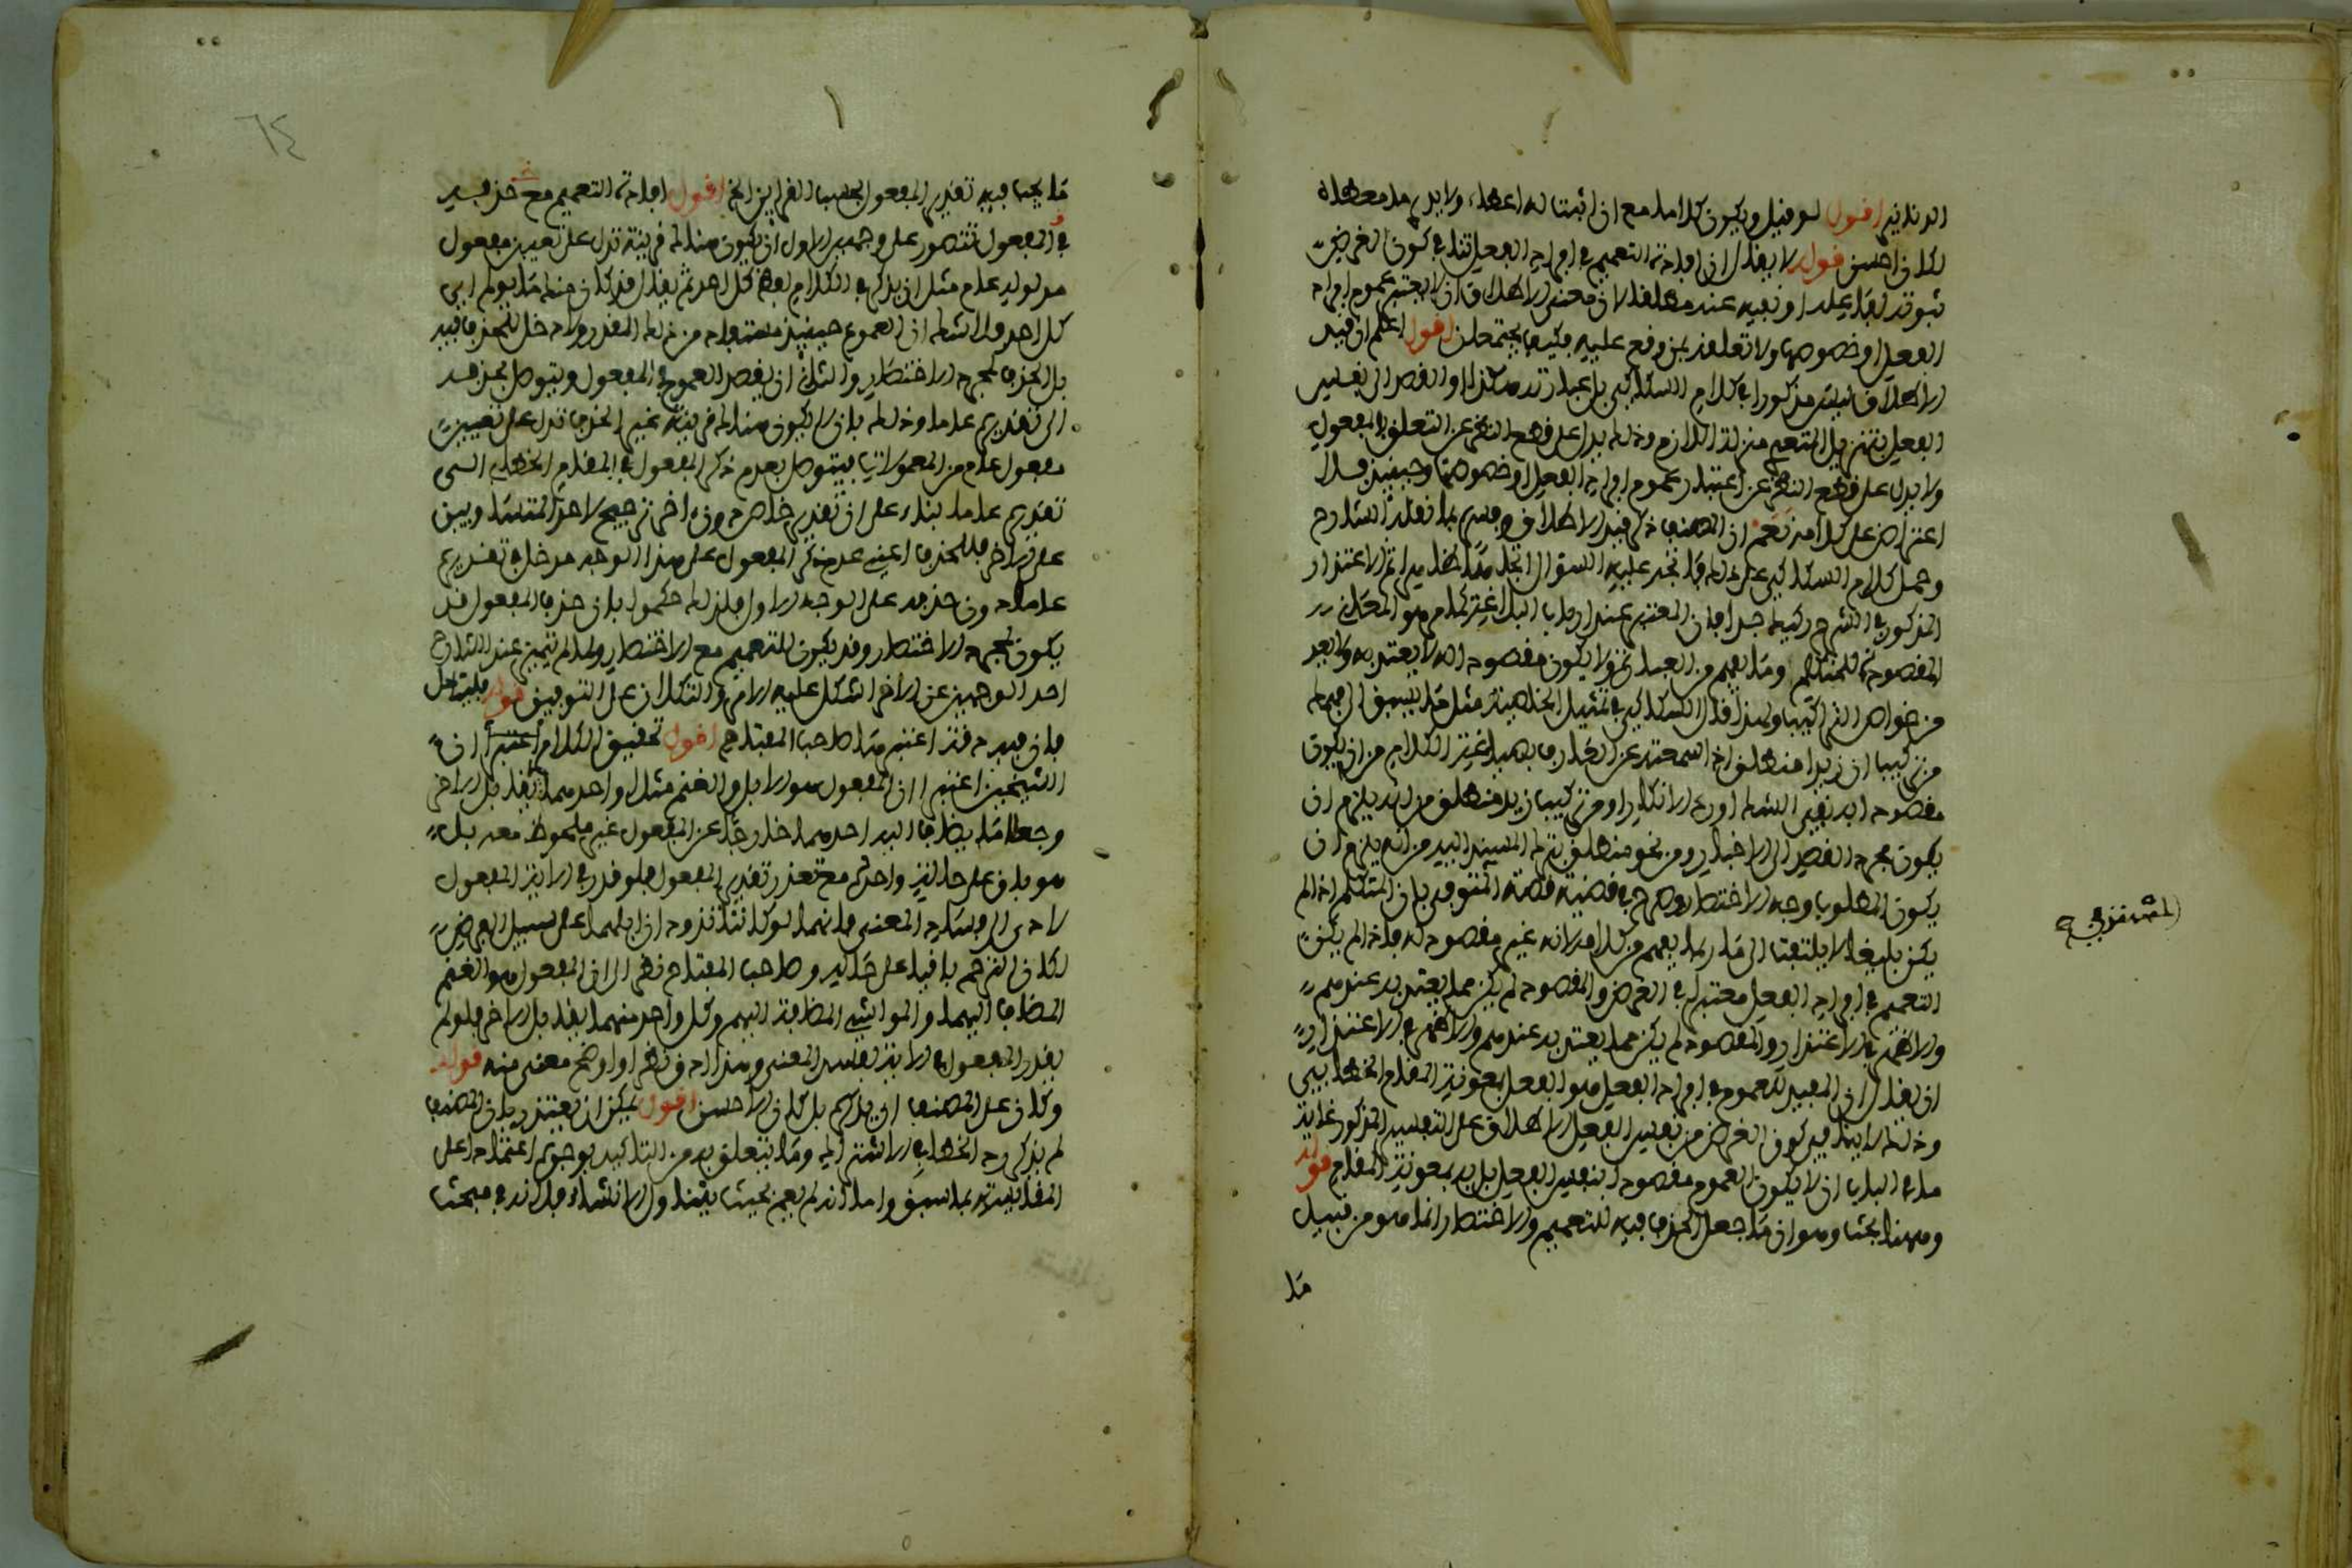 الدنانير اقول لو قيل ويكون كلاما مع ان اثبت له اعطاء ولا يدرى ما معطاه
لكان احسن قوله لا يقال ان افادة التعميم في افراد الفعل تنافي كون الغرض
ثبوته لفاعله او نفيه عنه مطلقا لان معنى الاطلاق ان لا يعتبر عموم افراد
الفعل او خصوصها ولا تعلقه بمن وقع عليه فكيف يجتمعان اقول اعلم ان قيد
الاطلاق ليس مذكورا في كلام السكاكي بل عبارته هكذا او القصد الى نفس
الفعل بتنزيل المتعدي منزلة اللازم وذلك يدل على قطع النظر عن التعلق بالمفعول
ولا يدل على قطع النظر عن اعتبار عموم افراد الفعل او خصوصها وحينئذ فلا
اعتراض على كلامه نعم ان المصنف ذكر قيد الاطلاق وفسره بما نقله الشارح
وحمل كلام السكاكي على ذلك فاتجه عليه السؤال اتجاها ظاهرا ثم الاعتذار
المذكور في الشرح ركيك جدا فان المعتبر عند ارباب البلاغة كما مر هو المعاني
المقصودة للمتكلم وما يفهم من العبارة ولا يكون مقصودا لا يعتد به ولا يعد
من خواص التراكيب ولهذا قال السكاكي في تمثيل الخاصية مثل ما يسبق الى فهمك
من تركيب ان زيدا منطلق اذا سمعته عن العارف بصياغة الكلام من ان يكون
مقصودا به نفي الشك او رد الانكار او من تركيب زيد منطلق من انه يلزم ان
يكون مجرد القصد الى الاخبار او من نحو منطلق بترك المسند اليه من انه يلزم ان
يكون المطلوب وجه الاختصار وصرح في قضية قصة المتوفى بان المتكلم اذا لم
يكن بليغا لا يلتفت الى ما ربما يفهم من كلامه لانه غير مقصود له فاذا لم يكن
التعميم في افراد الفعل معتبرا في الغرض والمقصود لم يكن مما يعتد به عندهم
والاظهر في الاعتذار والمقصود لم يكن مما يعتد به عندهم والاظهر في الاعتذار
ان يقال ان المفيد للعموم في افراد الفعل هو الفعل بمعونة المقام الخطابي
وذلك لا ينافي كون الغرض من نفس الفعل الاطلاق على التفسير المذكور غاية
ما في الباب ان لا يكون العموم مقصودا بنفس الفعل بل به بمعونة المقام قوله
وههنا بحث وهو ان ما جعل الحذف فيه للتعميم والاختصار انما هو من قبيل
ما
٦٤
ما يجب فيه تقدير المفعول بحسب القرائن الخ اقول افادة التعميم مع حذف
في المفعول تتصور على وجهين الاول ان يكون هناك قرينة تدل على تعيين مفعول
مدلوله عام مثل ان يذكر في الكلام لفظ كل احد ثم يقال قد كان منك ما يؤلم اي
كل احد ولا شك ان العموم حينئذ مستفاد من ذلك المقدر ولا دخل للحذف فيه
بل الحذف لمجرد الاختصار والثاني ان يقصد العموم في المفعول ويتوصل بحذفه
الى تقديره عاما وذلك بان لا يكون هناك قرينة غير الحذف تدل على تعيين
مفعول عام من المعمولات فيتوصل بعدم ذكر المفعول في المقام الخطابي الى
تقديره عاما بناء على ان تقدير خاص دون اخر ترجيح لاحد المتساويين
على الاخر فللحذف اعني عدم ذكر المفعول على هذا الوجه مدخل في تقديره
عاما دون حذفه على الوجه الاول فلذلك حكموا بان حذف المفعول قد
يكون لمجرد الاختصار وقد يكون للتعميم مع الاختصار ولما لم يتميز عند الشارح
احد الوجهين عن الاخر اشكل عليه الامر والتكلان على التوفيق قوله فليتامل
فان فيه دقة اعتبرها صاحب المفتاح اقول تحقيق الكلام ان
الشيخين اعتبرا ان المفعول هو الابل والغنم مثلا واحدهما يقابل الاخر
وجعلا ما يضاف اليه احدهما خارجا عن المفعول غير ملحوظ معه بل
هو باق على حاله واحد مع تعذر تقدير المفعول فلو قدر في الاية المفعول
لادى الى فساد المعنى فانهما لو كانتا تذودان ابلهما على سبيل الفرض
لكان الترحم باقيا على حاله وصاحب المفتاح نظر الى ان المفعول هو الغنم
المضاف اليهما والمواشي المضافة اليهم وكل واحد منهما يقابل الاخر فلو لم
يقدر المفعول في الاية لفسد المعنى وهذا ادق نظرا واوضح معنى منه قوله
وكان على المصنف ان يذكره بل كان الاحسن اقول يمكن ان يعتذر بان المصنف
لم يذكر رد الخطا في الاشتراك وما يتعلق به من التاكيد بوحده اعتمادا على
المقايسة بما سبق واما انه لم يعمم بحيث يتناول الانشاء فلانه في مبحث